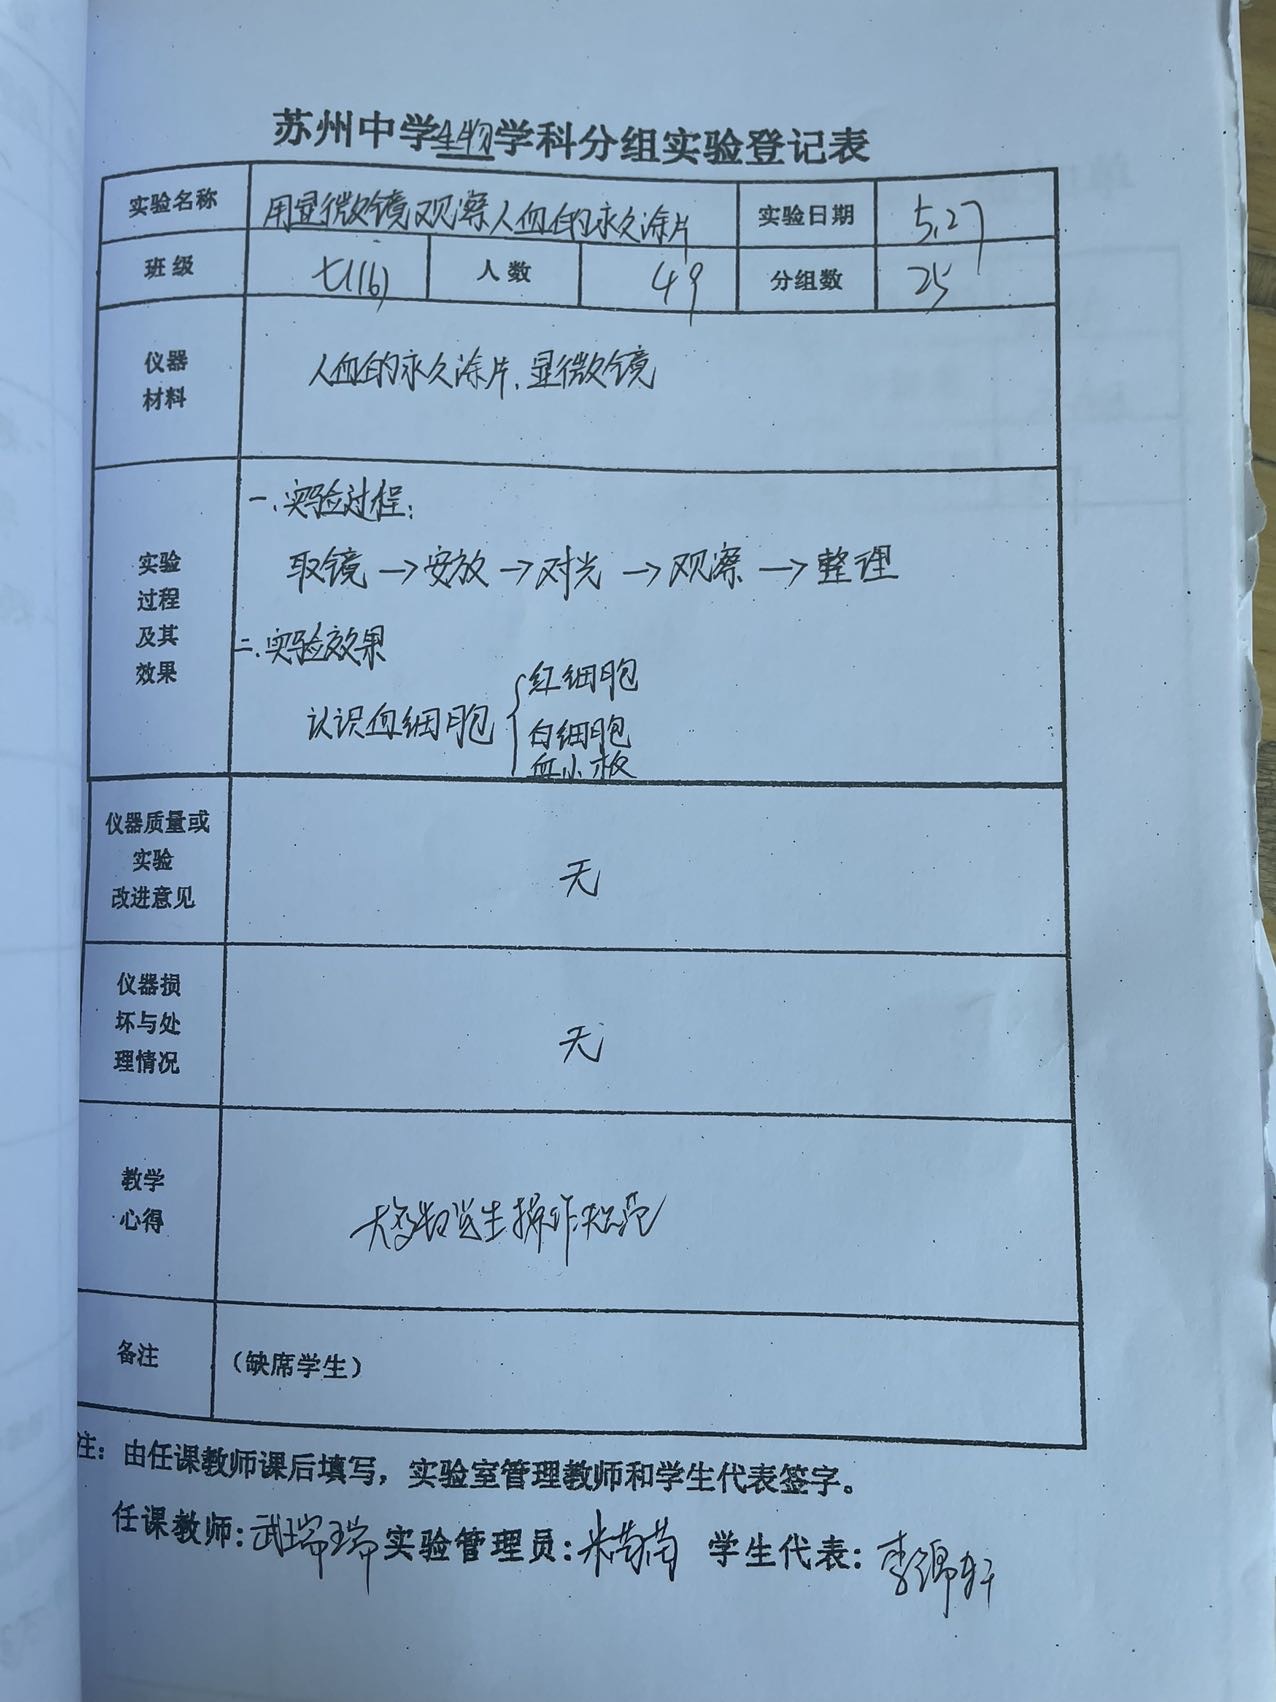 苏州中学生物学科分组实验登记表
实验名称 用显微镜观察人血的永久涂片 实验日期 5.27
班级 七(16) 人数 49 分组数 25
仪器
材料
人血的永久涂片、显微镜
实验
过程
及其
效果
一.实验过程:
取镜→安放→对光→观察→整理
二.实验效果
认识血细胞
红细胞
白细胞
血小板
仪器质量或
实验
改进意见
无
仪器损
坏与处
理情况
无
教学
心得
大多数学生操作规范
备注 (缺席学生)
注:由任课教师课后填写,实验室管理教师和学生代表签字。
任课教师:武瑞瑞 实验管理员: 学生代表:李锦轩